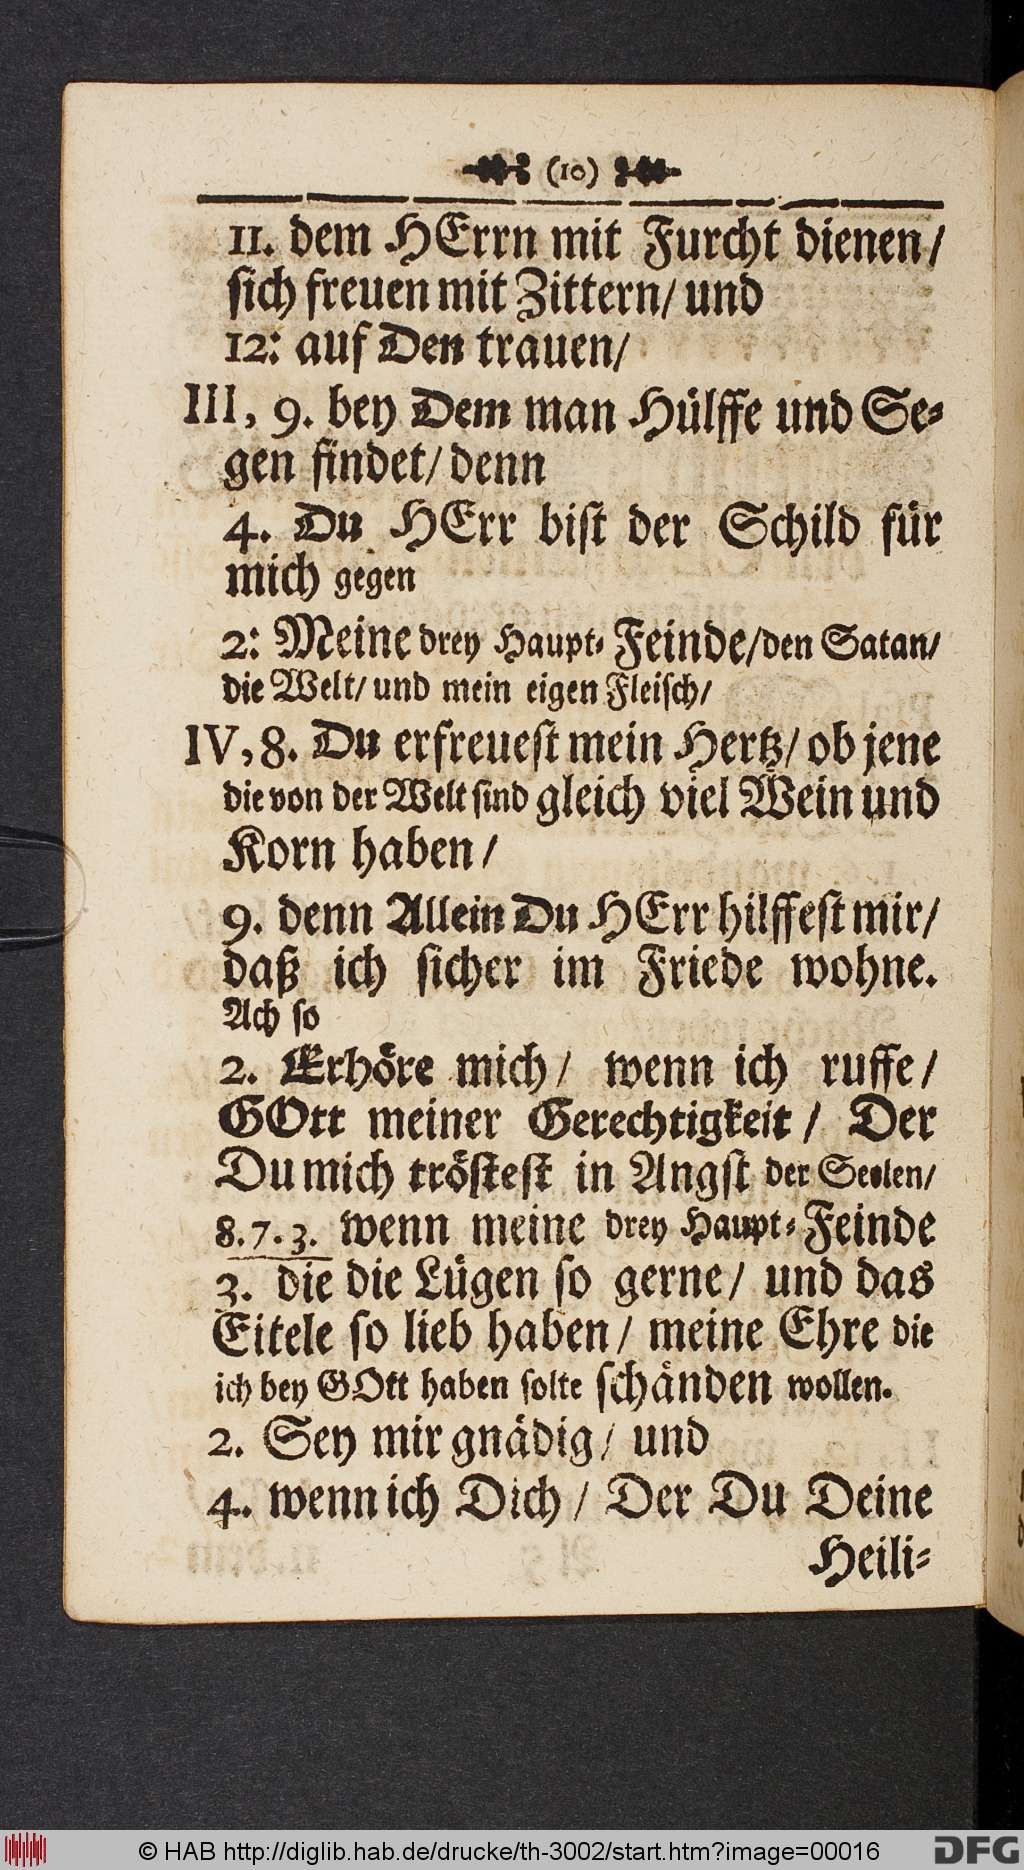 (10)
11. dem HErrn mit Furcht dienen/
sich freuen mit Zittern/ und
12: auf Den trauen/
III, 9. bey Dem man Hülffe und Se-
gen findet/ denn
4. Du HErr bist der Schild für
mich gegen
2: Meine drey Haupt- Feinde/ den Satan/
die Welt/ und mein eigen Fleisch/
IV, 8. Du erfreuest mein Hertz/ ob jene
die von der Welt sind gleich viel Wein und
Korn haben/
9. denn Allein Du HErr hilffest mir/
daß ich sicher im Friede wohne.
Ach so
2. Erhöre mich/ wenn ich ruffe/
GOtt meiner Gerechtigkeit/ Der
Du mich tröstest in Angst der Seelen/
8. 7. 3. wenn meine drey Haupt- Feinde
3. die die Lügen so gerne/ und das
Eitele so lieb haben/ meine Ehre die
ich bey GOtt haben solte schänden wollen.
2. Sey mir gnädig/ und
4. wenn ich Dich/ Der Du Deine
Heili-
© HAB http://diglib.hab.de/drucke/th-3002/start.htm?image=00016
DFG